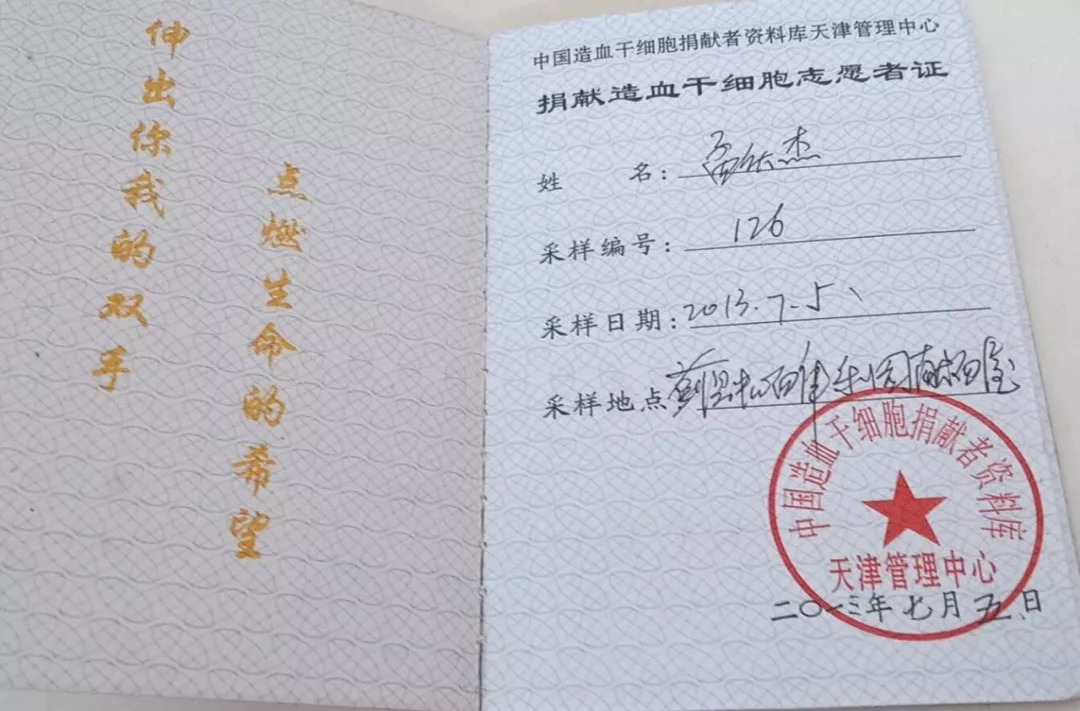 伸出你我的双手
点燃生命的希望
中国造血干细胞捐献者资料库天津管理中心
捐献造血干细胞志愿者证
姓 名：杰
采样编号：126
采样日期：2013.7.5、
采样地点
中国造血干细胞捐献者资料库
天津管理中心
二〇一三年七月五日